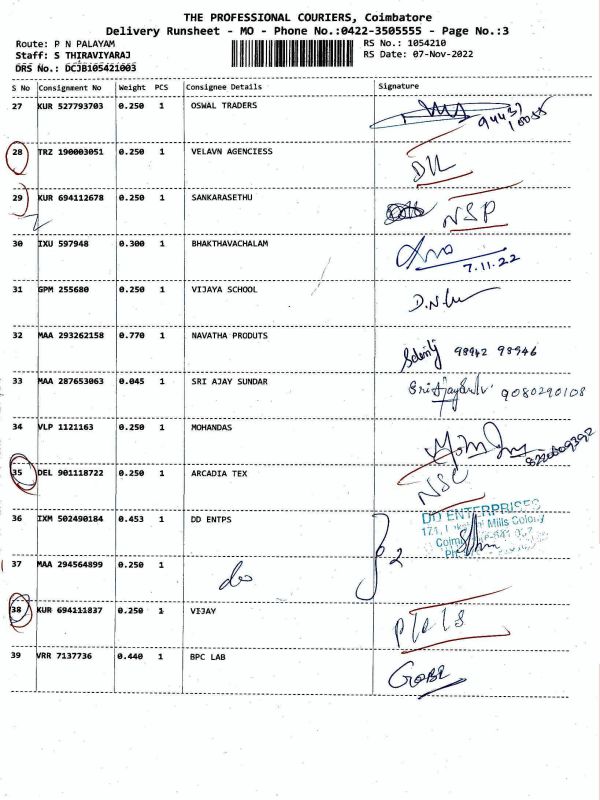 THE PROFESSIONAL COURIERS, Coimbatore
Delivery Runsheet - MO - Phone No.:0422-3505555 - Page No.:3
Route: P N PALAYAM RS No.: 1054210
Staff: S THIRAVIYARAJ RS Date: 07-Nov-2022
DRS No.: DCJB105421003
S No Consignment No Weight PCS Consignee Details Signature
27 KUR 527793703 0.250 1 OSWAL TRADERS 94437
10055
28 TRZ 190003051 0.250 1 VELAVN AGENCIESS DIL
29 KUR 694112678 0.250 1 SANKARASETHU NSP
30 IXU 597948 0.300 1 BHAKTHAVACHALAM
7.11.22
31 GPM 255680 0.250 1 VIJAYA SCHOOL
32 MAA 293262158 0.770 1 NAVATHA PRODUTS 98942 98946
33 MAA 287653063 0.045 1 SRI AJAY SUNDAR 9080290108
34 VLP 1121163 0.250 1 MOHANDAS
35 DEL 901118722 0.250 1 ARCADIA TEX NSC
36 IXM 502490184 0.453 1 DD ENTPS DD ENTERPRISES
Mills Colony
37 MAA 294564899 0.250 1 do 2
38 KUR 694111837 0.250 1 VIJAY
39 VRR 7137736 0.440 1 BPC LAB GOBI